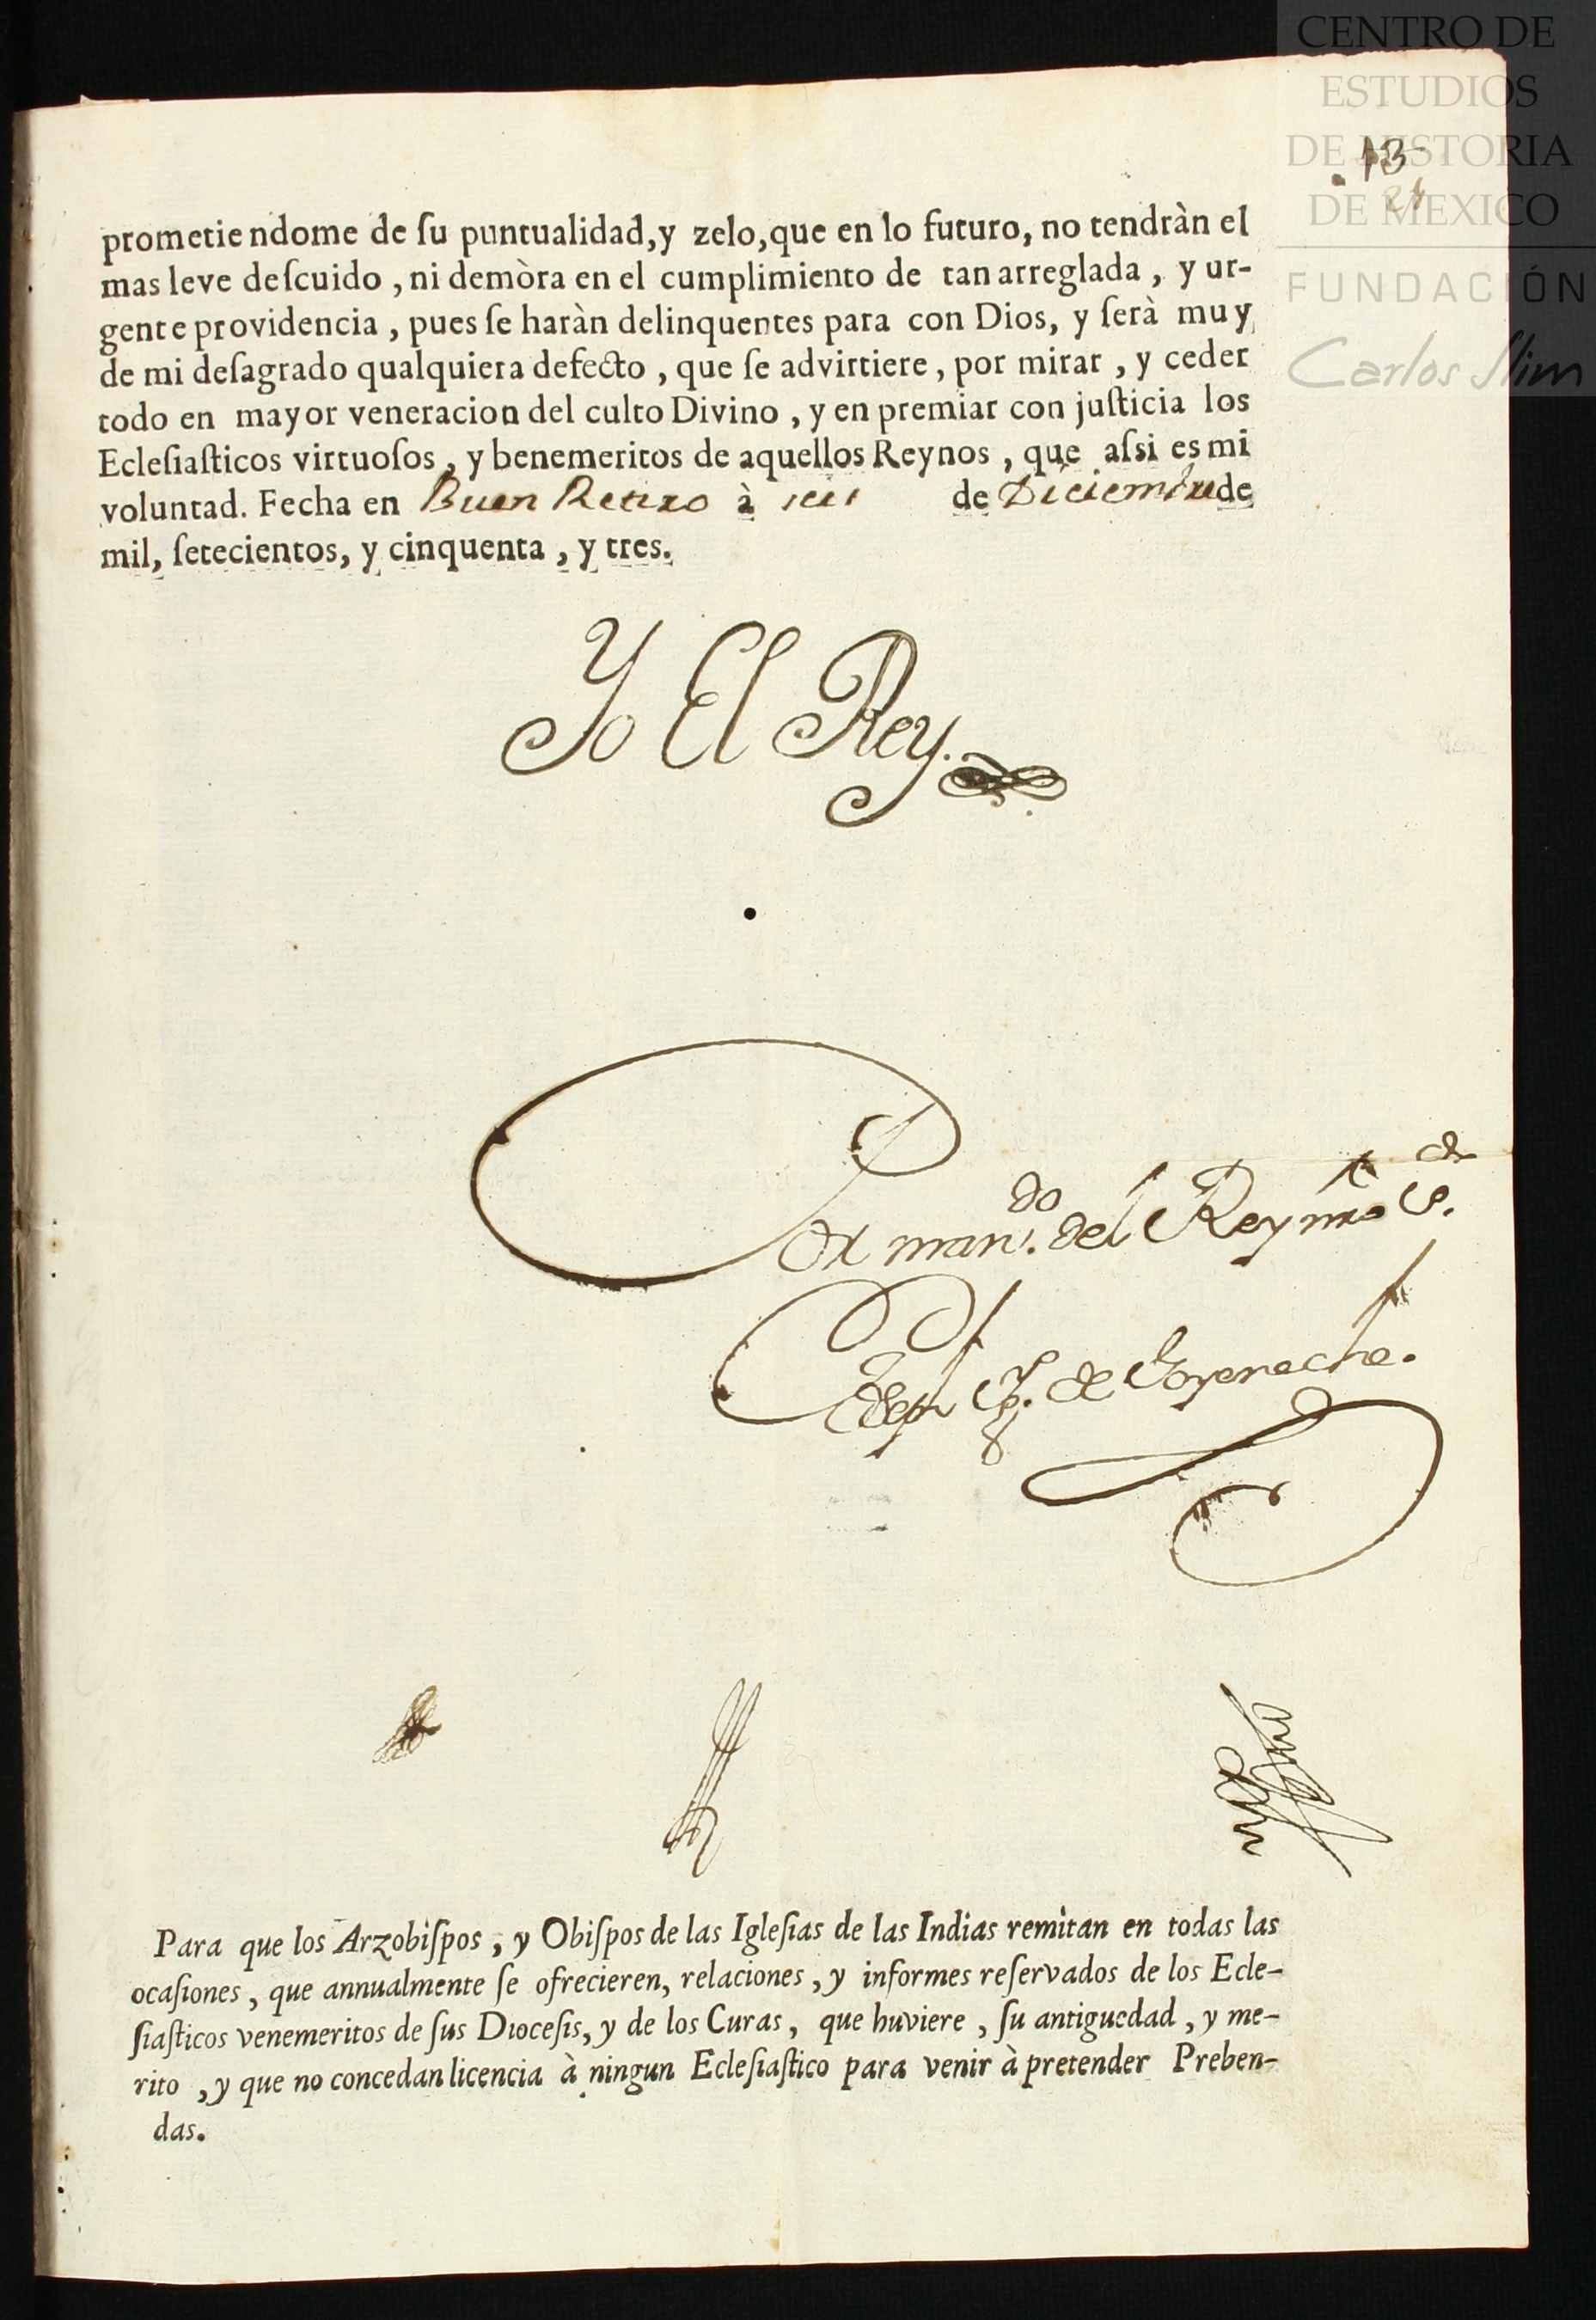 CENTRO DE
ESTUDIOS
DE HISTORIA
DE MEXICO
FUNDACIÓN
Carlos Slim
13
24
prometiendome de ſu puntualidad, y zelo, que en lo futuro, no tendràn el
mas leve deſcuido, ni demòra en el cumplimiento de tan arreglada, y ur-
gente providencia, pues ſe haràn delinquentes para con Dios, y ſerà muy
de mi deſagrado qualquiera defecto, que ſe advirtiere, por mirar, y ceder
todo en mayor veneracion del culto Divino, y en premiar con juſticia los
Ecleſiaſticos virtuoſos, y benemeritos de aquellos Reynos, que aſsi es mi
voluntad. Fecha en Buen Retiro à seis de Diciembre de
mil, ſetecientos, y cinquenta, y tres.
Yo El Rey.
Por man.do del Rey nro S.or
Joseph Ig.o de Goyeneche.
Para que los Arzobiſpos, y Obiſpos de las Igleſias de las Indias remitan en todas las
ocaſiones, que annualmente ſe ofrecieren, relaciones, y informes reſervados de los Ecle-
ſiaſticos venemeritos de ſus Dioceſis, y de los Curas, que huviere, ſu antiguedad, y me-
rito, y que no concedan licencia à ningun Ecleſiaſtico para venir à pretender Preben-
das.